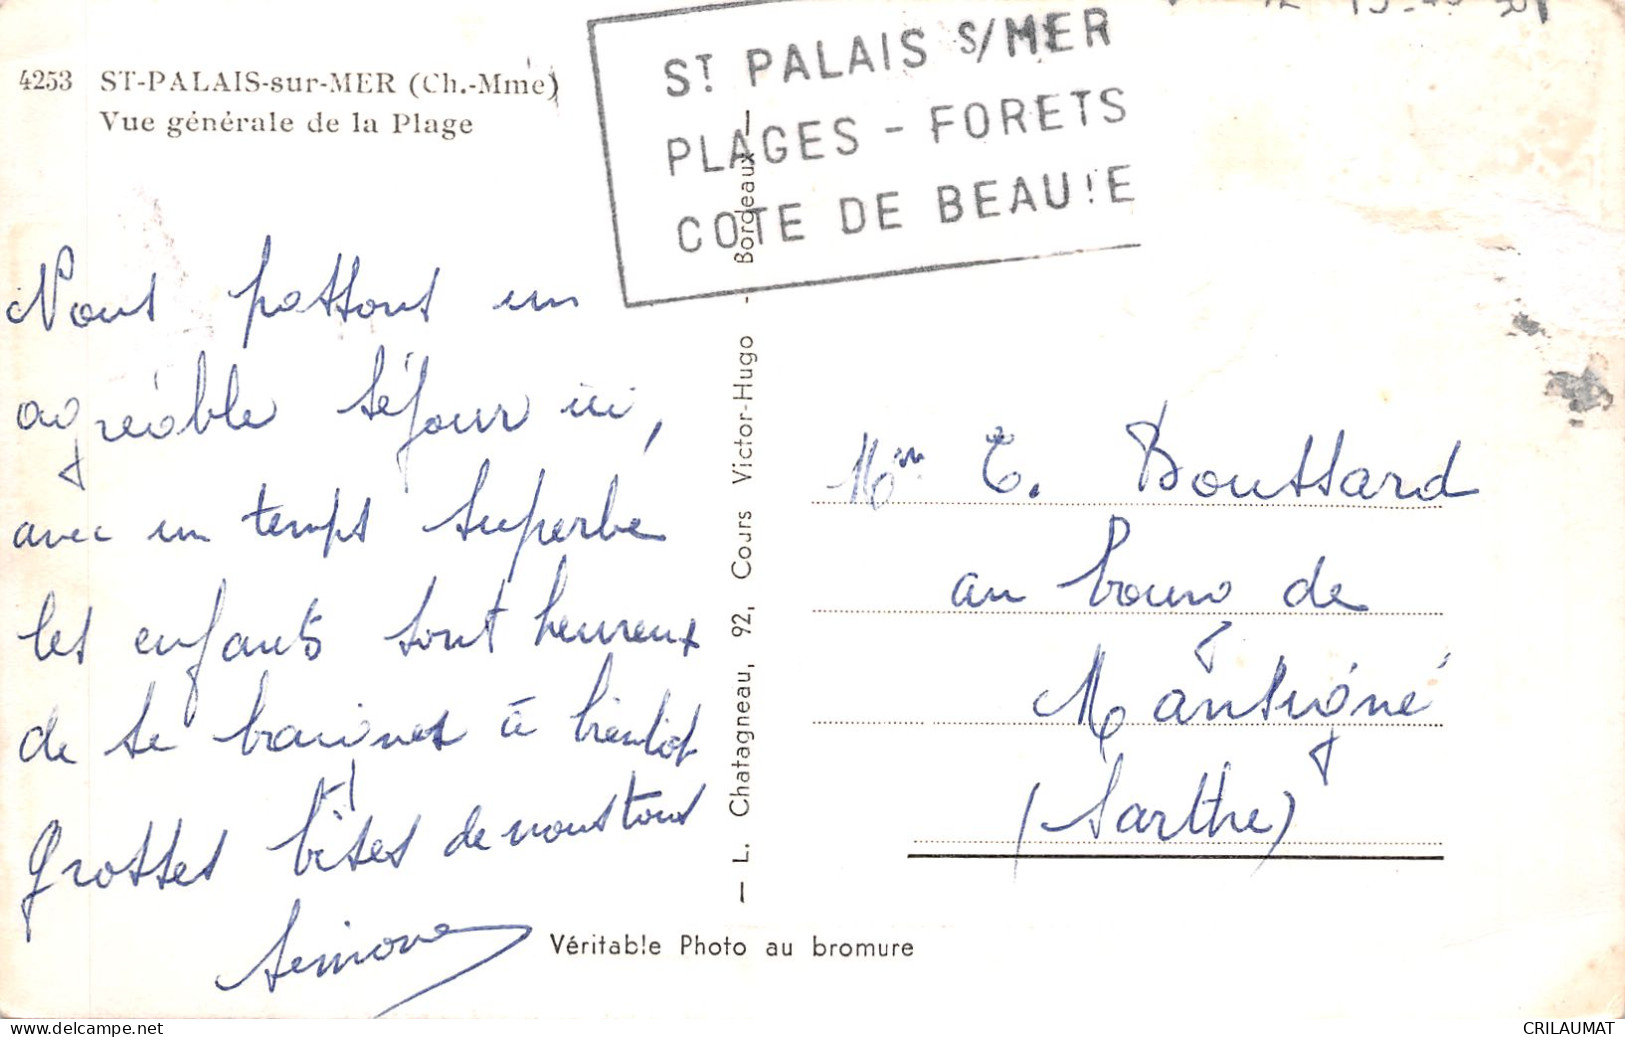 4253 ST-PALAIS-sur-MER (Ch.-Mme)
Vue générale de la Plage
ST PALAIS S/MER
PLAGES - FORETS
COTE DE BEAU!E
Nous passons un
agréable séjour ici,
avec un temps superbe
les enfants sont heureux
de se baigner à bientôt
Grosses bises de nous tous
Simone
— L. Chatagneau, 92, Cours Victor-Hugo - Bordeaux —
Mm E. Boussard
au bourg de
Mansigné
(Sarthe)
Véritable Photo au bromure
CRILAUMAT
www.delcampe.net